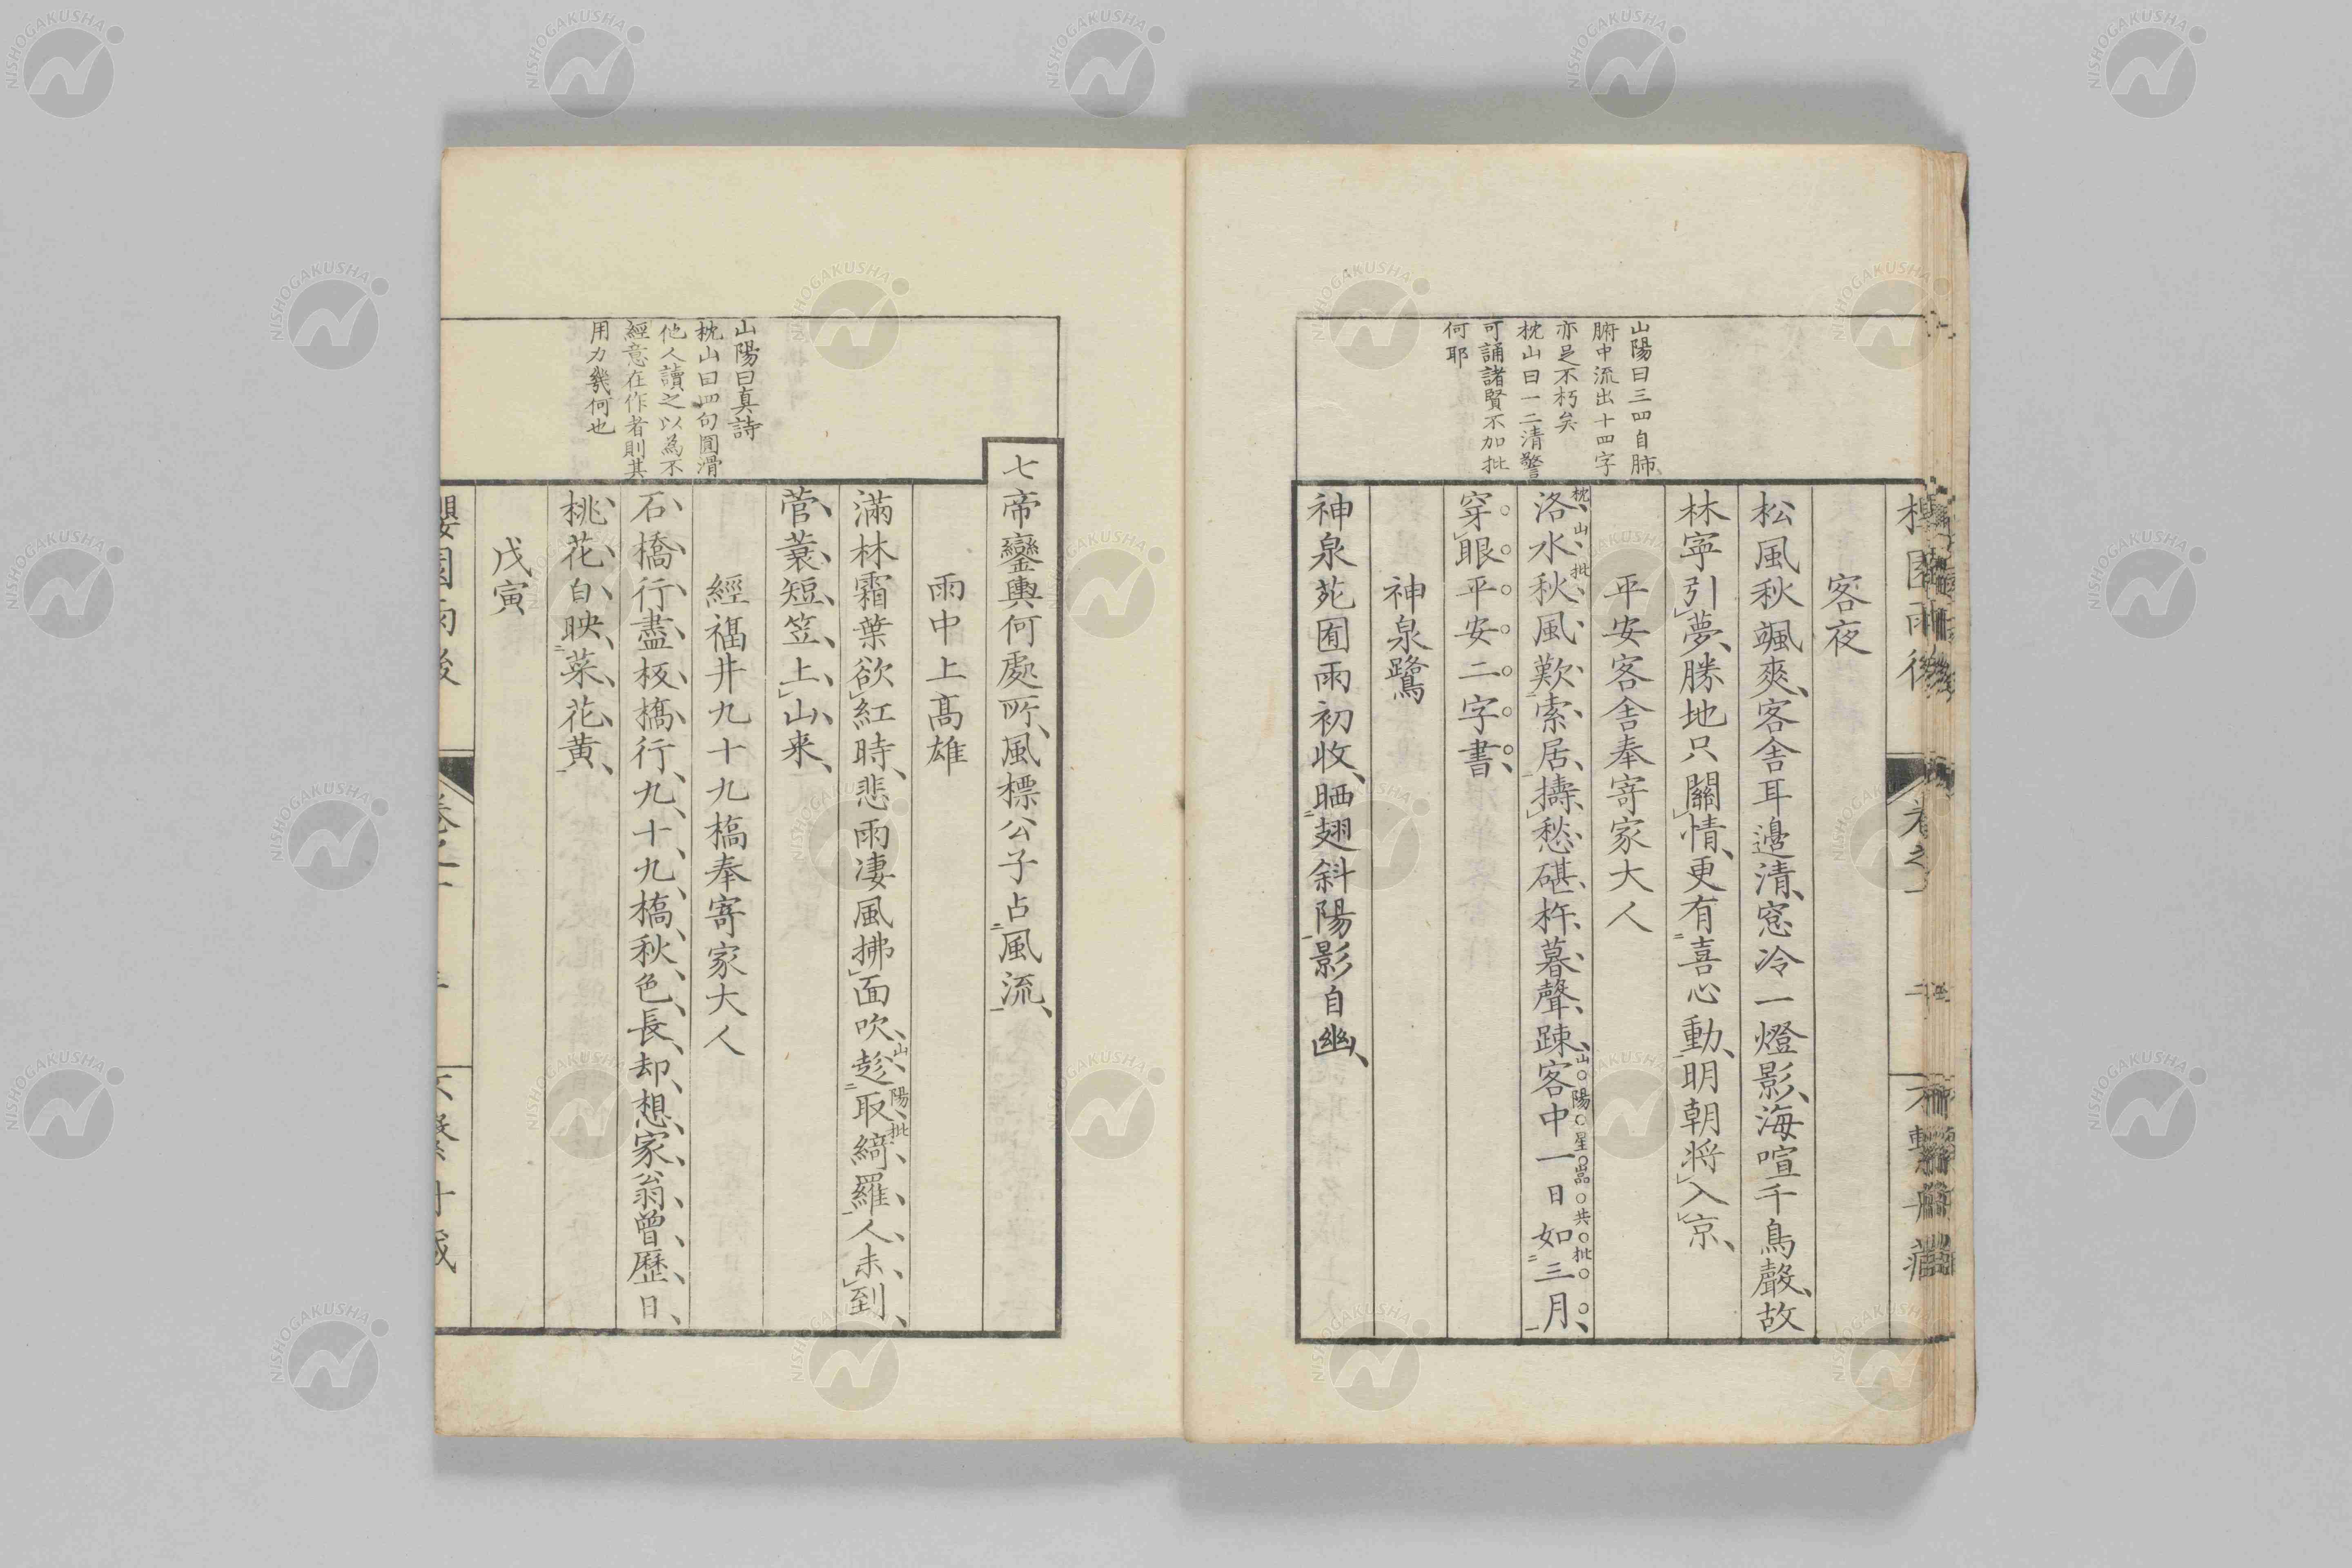 客夜
松風秋颯爽、客舎耳邊清、窓冷一燈影、海喧千鳥聲、故
林寧引夢、勝地只關情、更有喜心動、明朝将入京、
平安客舎奉寄家大人
枕山批
洛水秋風歎索居、擣愁碪杵暮聲踈、客中一日如三月、
山陽星巖共批
穿眼平安二字書、
神泉鷺
神泉苑囿雨初收、晒翅斜陽影自幽、
山陽曰三四自肺
腑中流出十四字
亦足不朽矣
枕山曰一二清警
可誦諸賢不加批
何耶
七帝鑾輿何處所、風標公子占風流、
雨中上髙雄
滿林霜葉欲紅時、悲雨凄風拂面吹、趁取綺羅人未到、
山陽批
菅蓑短笠上山来、
經福井九十九橋奉寄家大人
石橋行盡板橋行、九十九橋秋色長、却想家翁曽歴日、
桃花白映菜花黄、
戊寅
山陽曰真詩
枕山曰四句圓滑
他人讀之以為不
經意在作者則其
用力幾何也